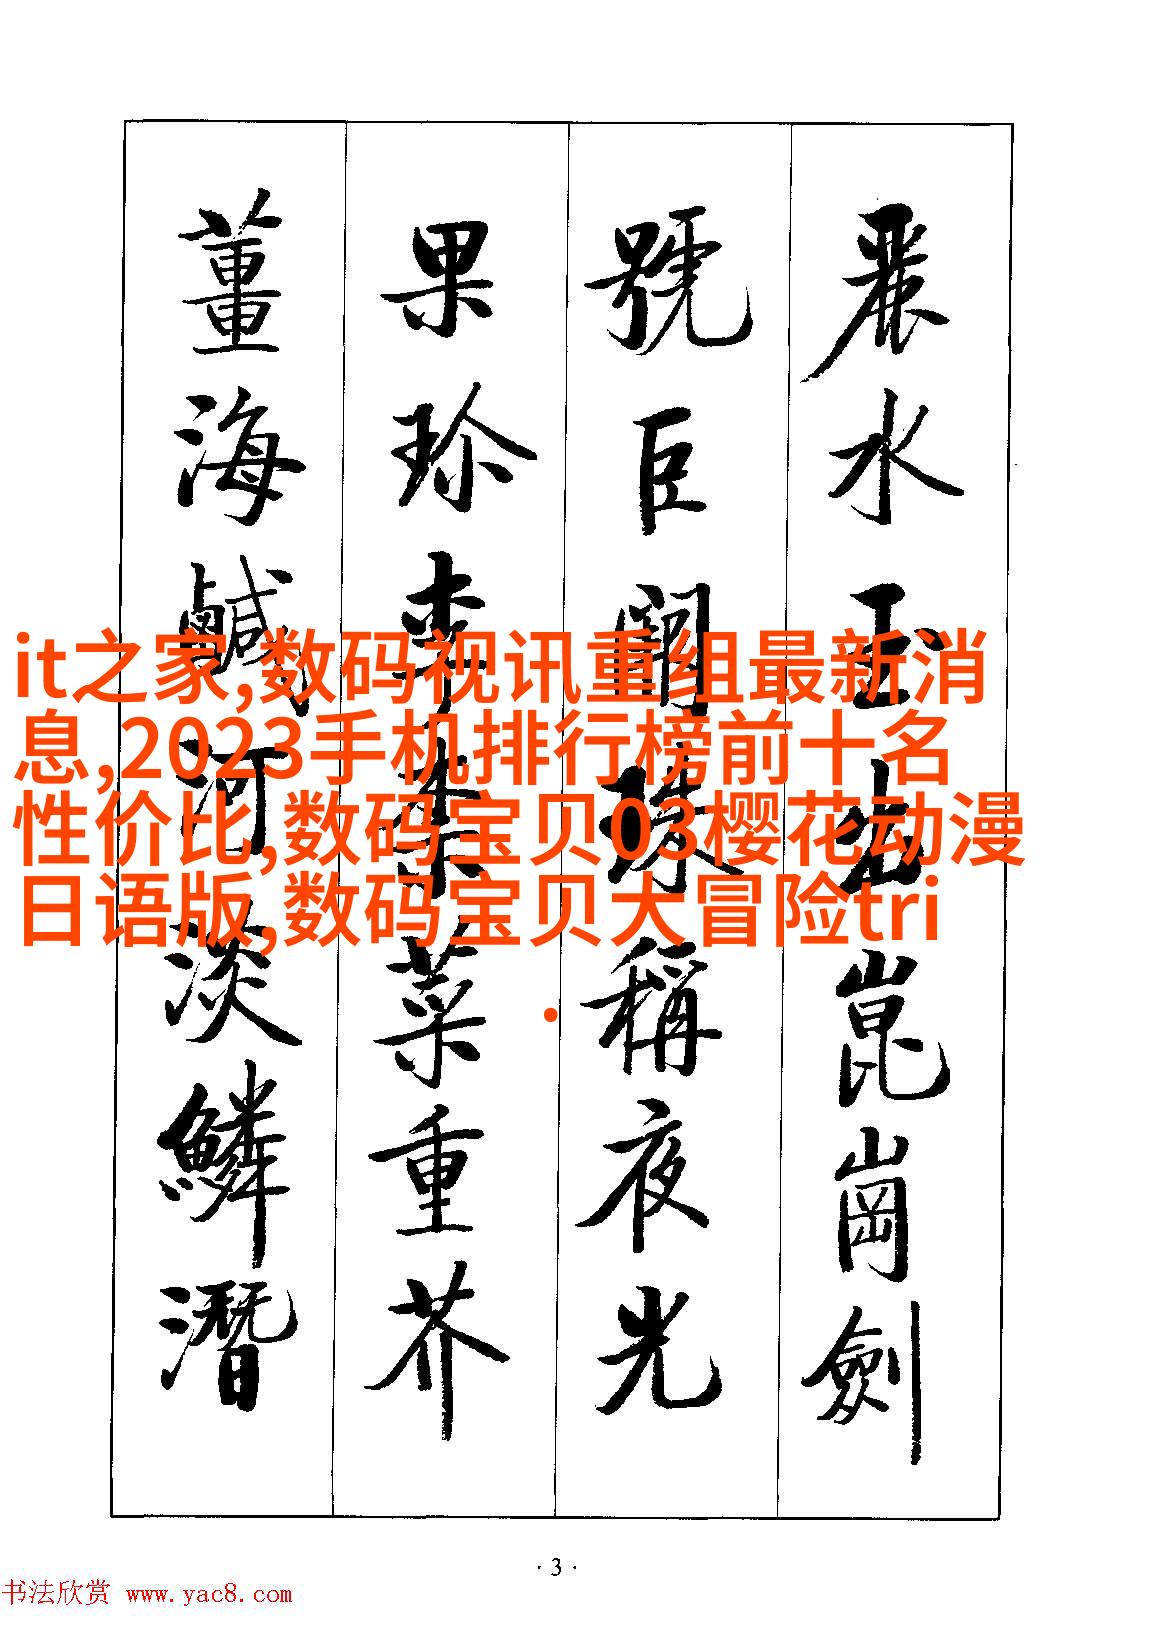 麗水玉出崑崗劍
號巨闕珠稱夜光
果珍李柰菜重芥
薑海鹹河淡鱗潛
it之家,数码视讯重组最新消
息,2023手机排行榜前十名
性价比,数码宝贝03樱花动漫
日语版,数码宝贝大冒险tri
.
·3·
书法欣赏 www.yac8.com